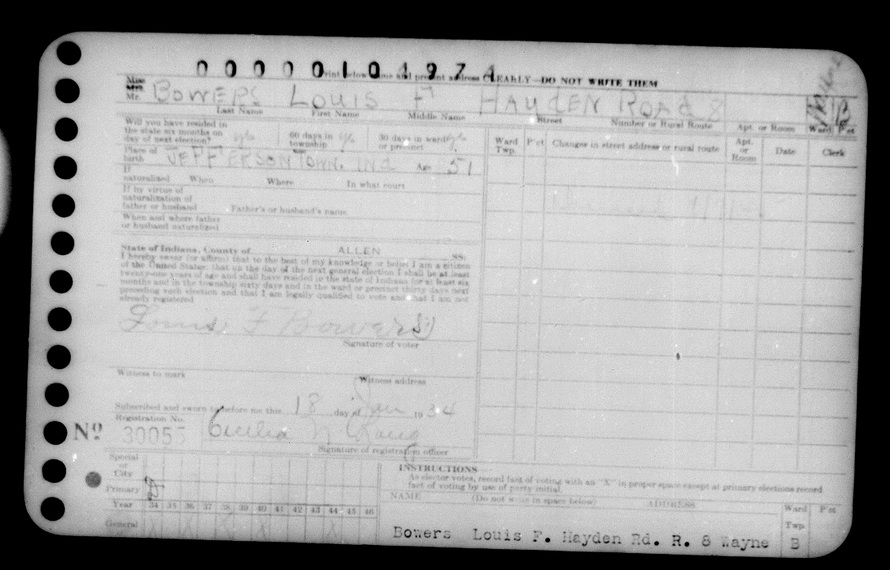 0 0 0 0 0 1 0 4 9 7 4
Print below name and present address CLEARLY—DO NOT WRITE THEM
Miss
Mrs.
Mr. BOWERS LOUIS F HAYDEN ROAD 8
Last Name First Name Middle Name Street Number or Rural Route Apt. or Room Ward P'ct
Will you have resided in
the state six months on
day of next election? yes 60 days in
township yes 30 days in ward
or precinct yes
Place of
birth JEFFERSONTOWN, IND Age 51
If
naturalized When Where In what court
If by virtue of
naturalization of
father or husband Father's or husband's name
When and where father
or husband naturalized
Ward
Twp. P'ct Changes in street address or rural route Apt.
or
Room Date Clerk
State of Indiana, County of ALLEN SS:
I hereby swear (or affirm) that to the best of my knowledge or belief I am a citizen
of the United States: that on the day of the next general election I shall be at least
twenty-one years of age and shall have resided in the state of Indiana for at least six
months and in the township sixty days and in the ward or precinct thirty days next
preceding such election and that I am legally qualified to vote and that I am not
already registered
Louis F Bowers
Signature of voter
Witness to mark Witness address
Subscribed and sworn to before me this 18 day of Jan 1934
Registration No.
Nº 30055 Cecilia
Signature of registration officer
Special
or
City
Primary
Year 34 35 36 37 38 39 40 41 42 43 44 45 46
General
INSTRUCTIONS
As elector votes, record fact of voting with an "X" in proper space except at primary elections record
fact of voting by use of party initial.
NAME (Do not write in space below) ADDRESS Ward
Twp. P'ct
Bowers Louis F. Hayden Rd. R. 8 Wayne B